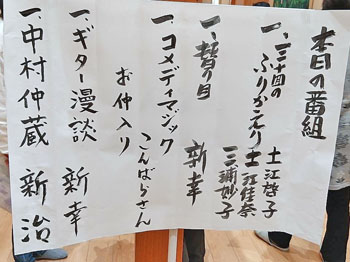 本日の番組
一、三十回の
ふりかえり
土江啓子
土江佳奈
三浦妙子
一、替り目 新幸
一、コメディマジック
こんばらさん
お仲入り
一、ギター漫談 新幸
一、中村仲蔵 新治